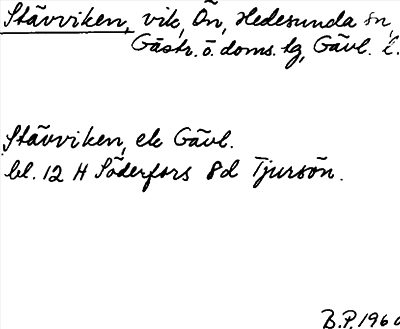 Stävviken, vik, Ön, Hedesunda sn,
Gästr. ö. doms. lg, Gävl. l.
Stävviken, ek Gävl.
bl. 12 H Söderfors 8d Tjursön.
B.P. 1960